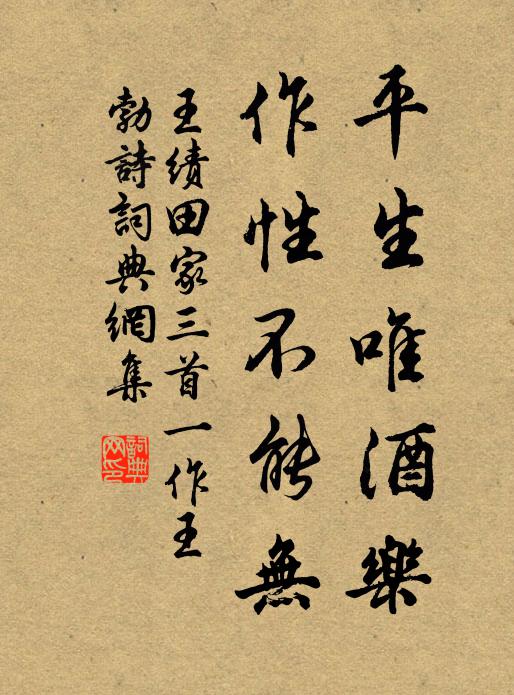 平生唯酒樂
作性不能無
王績田家三首一作王
勃詩詞典網集
詞典
网印